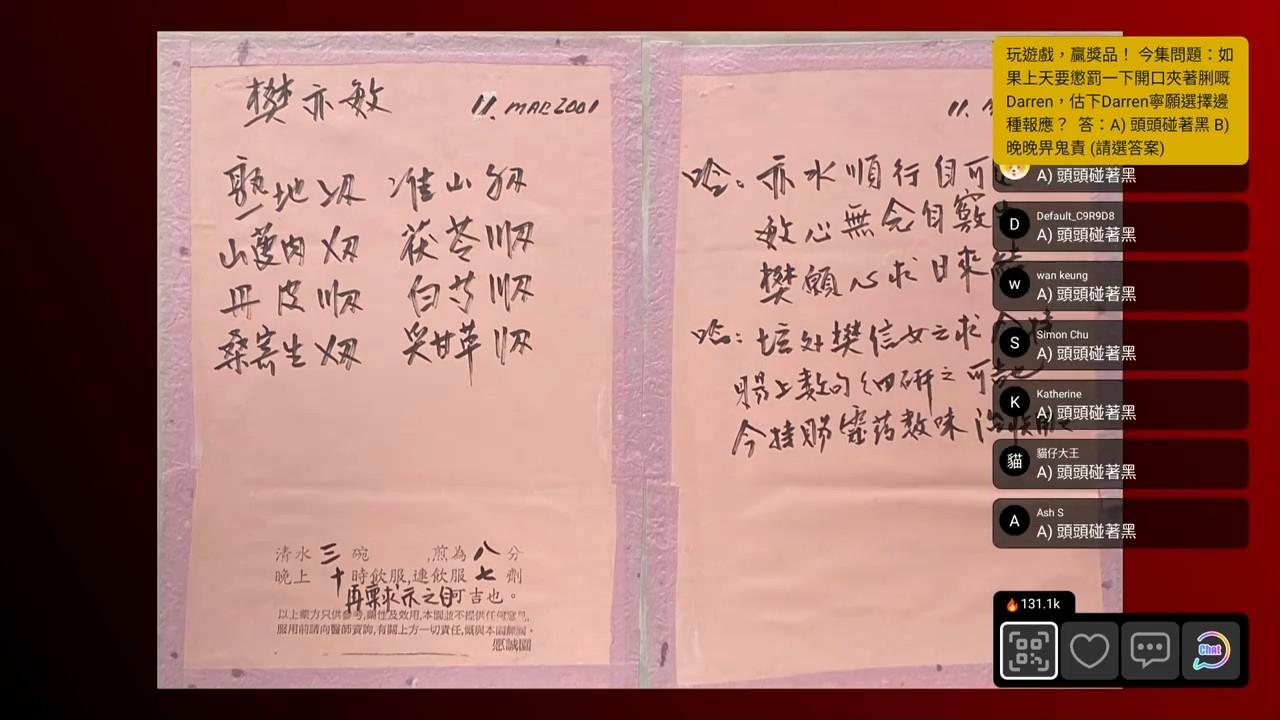 樊亦敏
11. MAR 2001
熟地
淮山
山萸肉
茯苓
丹皮
白芍
桑寄生
清水 三 碗 ,煎為 八 分
晚上 十 時飲服,連飲服 七 劑
再稟求示之自可吉也。
以上藥方只供參考,藥性及效用,本園並不提供任何意見。
服用前請向醫師資詢,有關上方一切責任,慨與本園無關。
11.
亦水順行自可
敏心無念自竅
樊願心求日來
樊信女之求
賜上數句細研之可
今特賜靈药数味
玩遊戲,贏獎品! 今集問題:如
果上天要懲罰一下開口夾著脷嘅
Darren,估下Darren寧願選擇邊
種報應? 答:A) 頭頭碰著黑 B)
晚晚畀鬼責 (請選答案)
A) 頭頭碰著黑
D
Default_C9R9D8
A) 頭頭碰著黑
w
wan keung
A) 頭頭碰著黑
S
Simon Chu
A) 頭頭碰著黑
K
Katherine
A) 頭頭碰著黑
貓
貓仔大王
A) 頭頭碰著黑
A
Ash S
A) 頭頭碰著黑
131.1k
Chat